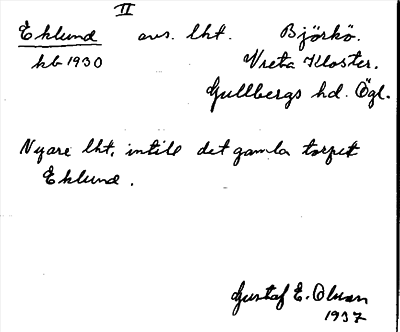 II
Eklund avs. lht. Björkö.
kb 1930 Vreta Kloster.
Gullbergs hd. Ögl.
Nyare lht. intill det gamla torpet
Eklund.
Gustaf E. Olson
1937